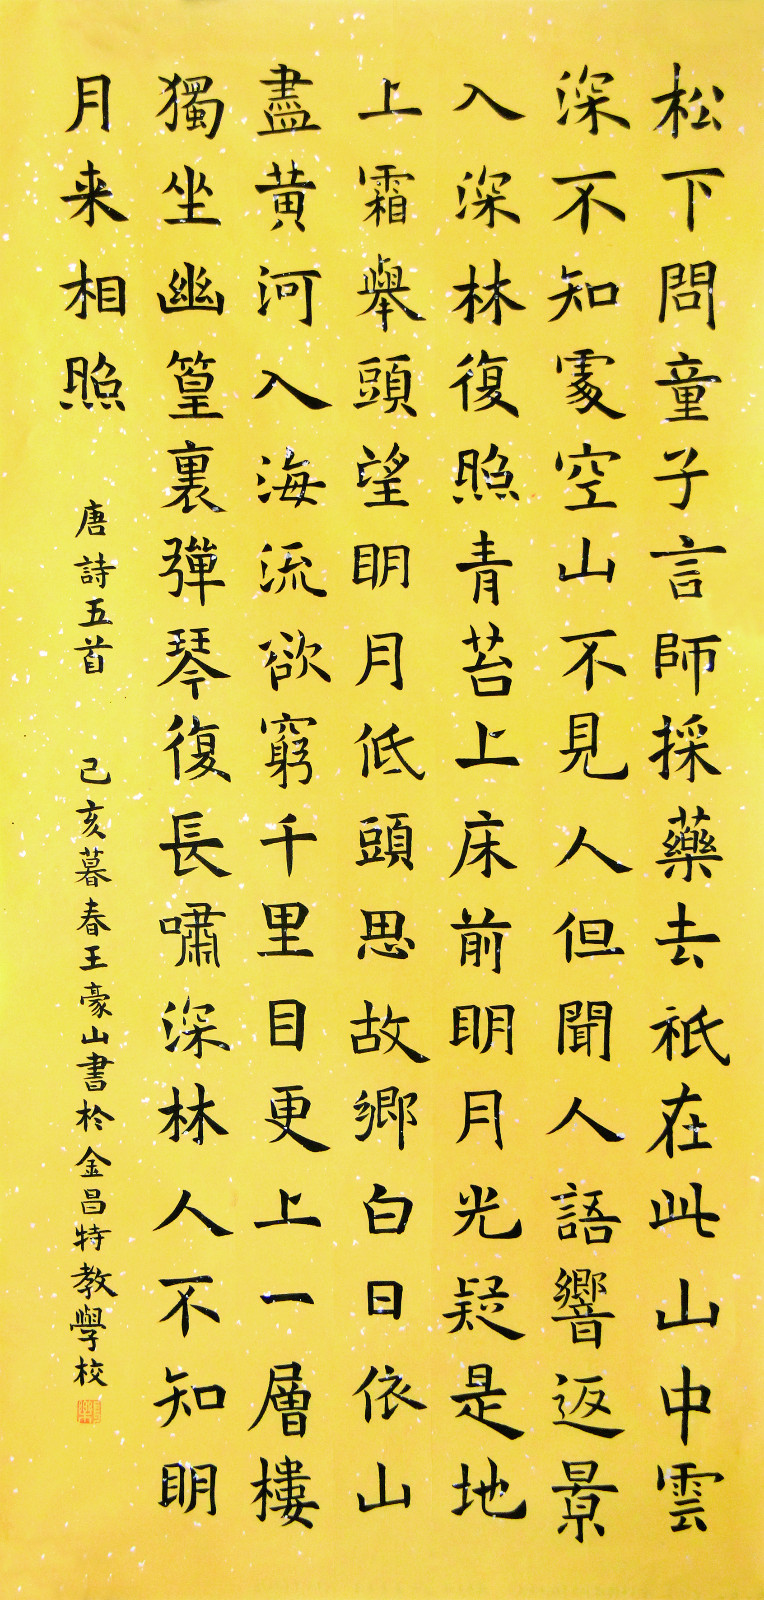 松下問童子言師採藥去祇在此山中雲
深不知處空山不見人但聞人語響返景
入深林復照青苔上床前明月光疑是地
上霜舉頭望明月低頭思故鄉白日依山
盡黄河入海流欲窮千里目更上一層樓
獨坐幽篁裏彈琴復長嘯深林人不知明
月来相照
唐詩五首
己亥暮春王豪山書於金昌特教學校